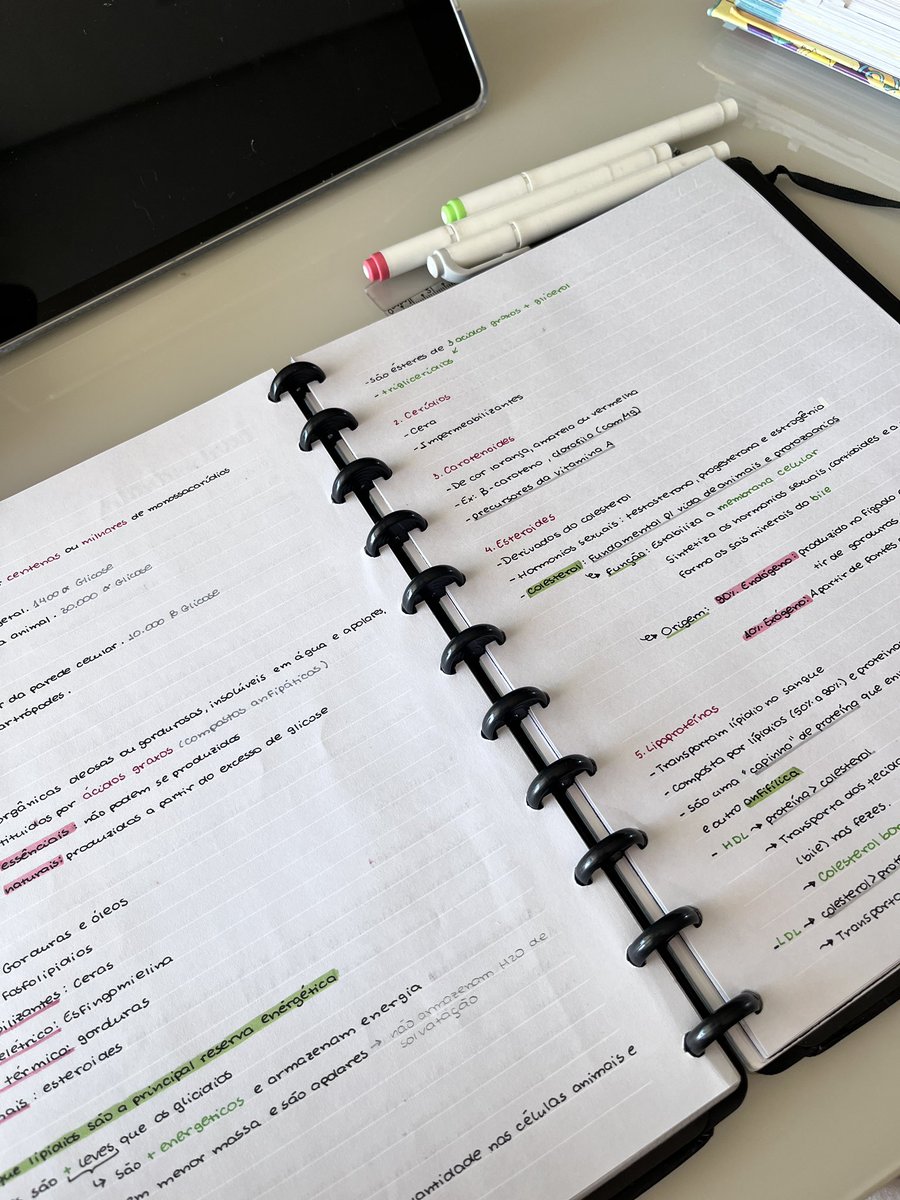 centenas ou milhares de monossacarídios
geral: 1400 α Glicose
a animal: 30.000 α Glicose
da parede celular: 10.000 β Glicose
artrópodes.
orgânicas oleosas ou gordurosas, insolúveis em água e apolares,
tituídos por ácidos graxos (compostos anfipáticos)
essênciais: não podem se produzidos
naturais: produzidos a partir do excesso de glicose
Gorduras e óleos
Fosfolipídios
bilizantes: Ceras
elétrico: Esfingomielina
térmico: gorduras
nais: esteroides
que lipídios são a principal reserva energética
são + leves que os glicídios
↳ são + energéticos e armazenam energia
em menor massa e são apolares → não armazenam H2O de
solvatação
uantidade nas células animais e
-São ésteres de 3 ácidos graxos + glicerol
-triglicerídios
2. Cerídios
-Cera
-Impermeabilizantes
3. Carotenoides
-De cor laranja, amarelo ou vermelha
-Ex: B-caroteno, clorofila (com Mg)
-precursores da vitamina A
4. Esteroides
-Derivados do colesterol
-Hormonios sexuais: testosterona, progesterona e estrogênio
-Colesterol: Fundamental p/ vida de animais e protozoários
↳ Função: Estabiliza a membrana celular
Sintetiza os hormonios sexuais, corticoides e a
forma os sais minerais da bile
↳ Origem: 80% Endógeno: produzido no fígado
tir de gorduras
10% Exógeno: A partir de fontes
5. Lipoproteínas
- Transportam lipídio no sangue
- composta por lipídios (50% a 80%) e proteína
- são uma "capinha" de proteína que
e outro anfifílica
- HDL → proteína > colesterol.
→ Transporta dos tecido
(bile) nas fezes.
→ Colesterol bom
-LDL → colesterol > prote
→ Transporta